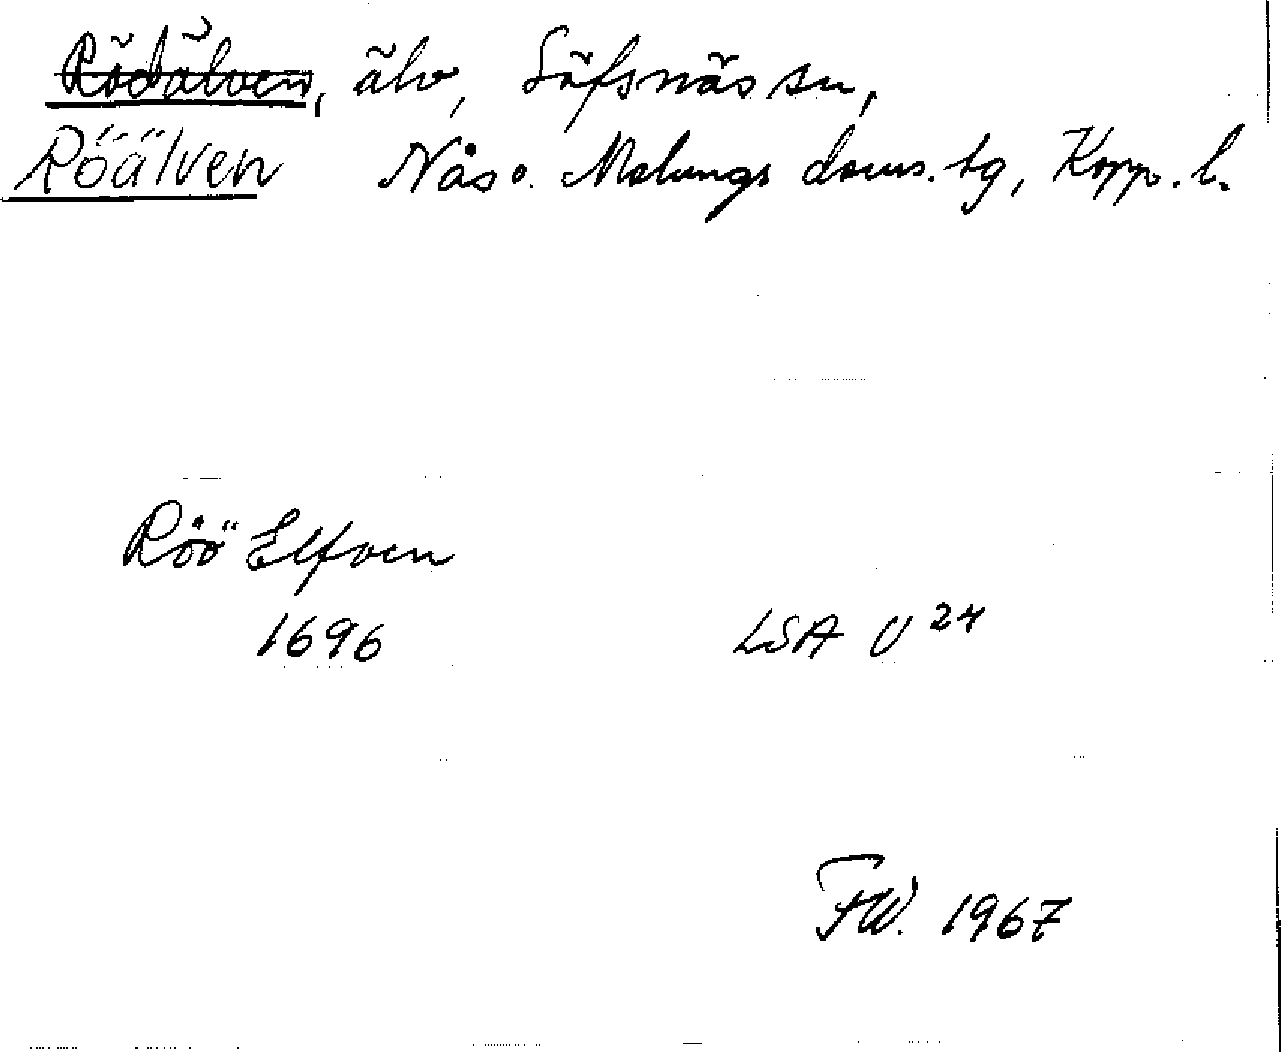 Rödälven, älv, Säfsnäs sn,
Röälven Nås o. Malungs doms. tg, Kopp. l.
Röö Elfven
1696 LSA U 24
FW. 1967